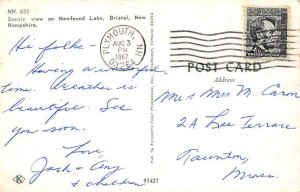 NH. 655
Scenic view on Newfound Lake, Bristol, New
Hampshire.
Hi folks -
Having a wonderful
time. Weather is
beautiful. See
you soon.
Love,
Jack +
+ children
PLYMOUTH, NH
AUG 3
PM
03264
POST CARD
Address
Mr + Mrs M. Caron
2A Bee Terrace
Taunton,
Mass.
K
97427